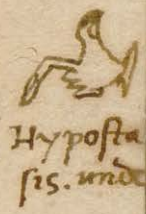 Hyposta
sis. unde